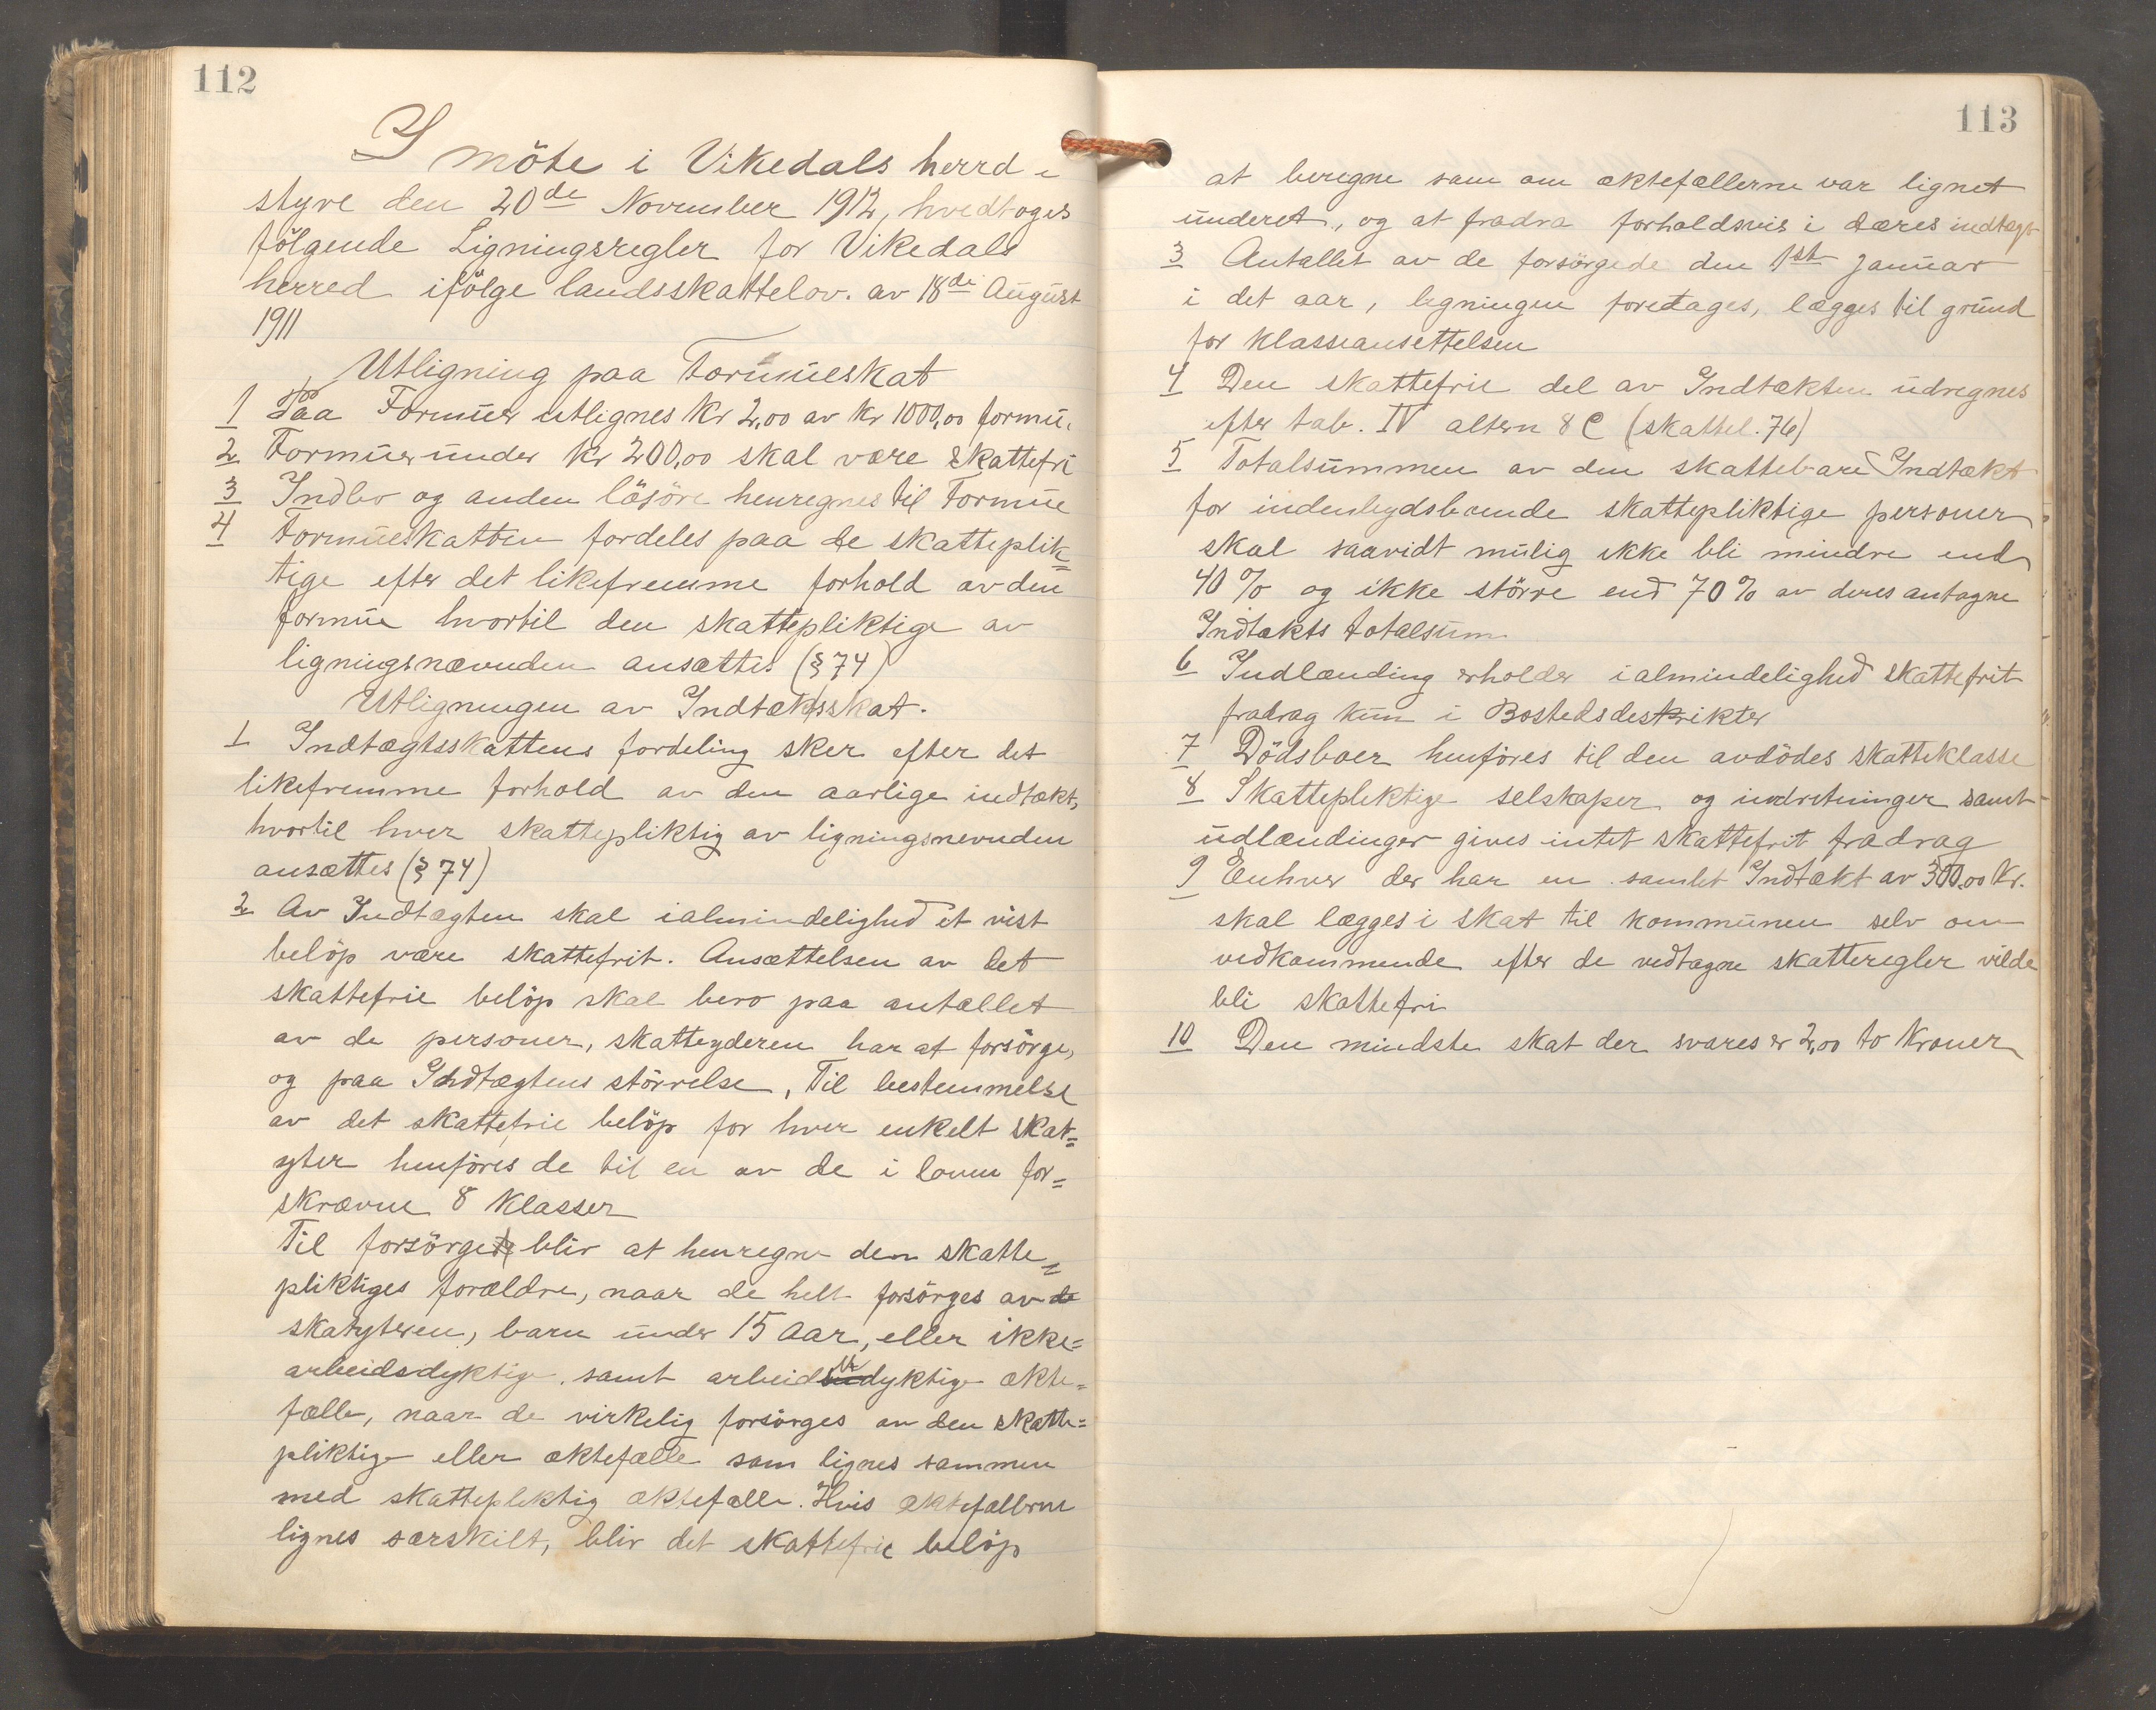 112
I möte i Vikedals herred-
styre den 20de November 1912, hvedtoges
fölgende Ligningsregler for Vikedals
herred ifölge landsskattelov. av 18de August
1911
Utligning paa Formueskat
1 Paa Formuer utlignes Kr 2,00 av Kr 1000,00 formu.
2 Formuer under Kr 200,00 skal være skattefri
3 Indbo og anden lösöre henregnes til Formue
4 Formueskatten fordeles paa de skatteplik=
tige efter det likefremme forhold av den
formue hvortil den skattepliktige av
ligningsnævnden ansættes (§ 74)
Utligningen av Indtæktsskat.
1 Indtægtsskattens fordeling sker efter det
likefremme forhold av den aarlige indtækt,
hvortil hver skattepliktig av ligningsnevnden
ansættes (§ 74)
2 Av Indtægten skal ialmindelighed et vist
belöp være skattefrit. Ansættelsen av det
skattefrie belöp skal bero paa antallet
av de personer, skatteyderen har at forsörge,
og paa Indtægtens störrelse, Til bestemmelse
av det skattefrie belöp for hver enkelt skat=
yter henföres de til en av de i loven for=
skrævne 8 Klasser
Til forsörgede blir at henregne den skatte=
pliktiges forældre, naar de helt forsörges av de
skatyteren, barn under 15 Aar, eller ikke=
arbeidsdyktige. samt arbeidsudyktige ækte=
fælle, naar de virkelig forsörges av den skatte=
pliktige eller æktefælle som lignes sammen
med skattepliktig æktefælle. Hvis æktefællerne
lignes særskilt, blir det skattefrie belöp
113
at beregne som om æktefællerne var lignet
underet, og at fradra forholdsvis i dæres indtægt
3 Antallet av de forsörgede den 1st Januar
i det aar, ligningen foretages, lægges til grund
for Klasseansettelsen
4 Den skattefrie del av Indtækten udregnes
efter tab. IV altern 8 C (skattel. 76)
5 Totalsummen av den skattebare Indtækt
for indenbydsboende skattepliktige personer
skal saavidt mulig ikke bli mindre end
40 % og ikke större end 70 % av deres antagne
Indtækts totalsum
6 Indlænding erholder ialmindelighed skattefrit
fradrag kun i Bostedsdestrikter
7 Dödsboer henföres til den avdödes skatteklasse
8 Skattepliktige selskaper og indretninger samt
udlændinger gives intet skattefrit fradrag
9 Enhver der har en samlet Indtækt av 300,00 Kr.
skal lægges i skat til kommunen selv om
vedkommende efter de vedtagne skatteregler vilde
bli skattefri
10 Den mindste skat der svares er 2,00 to Kroner